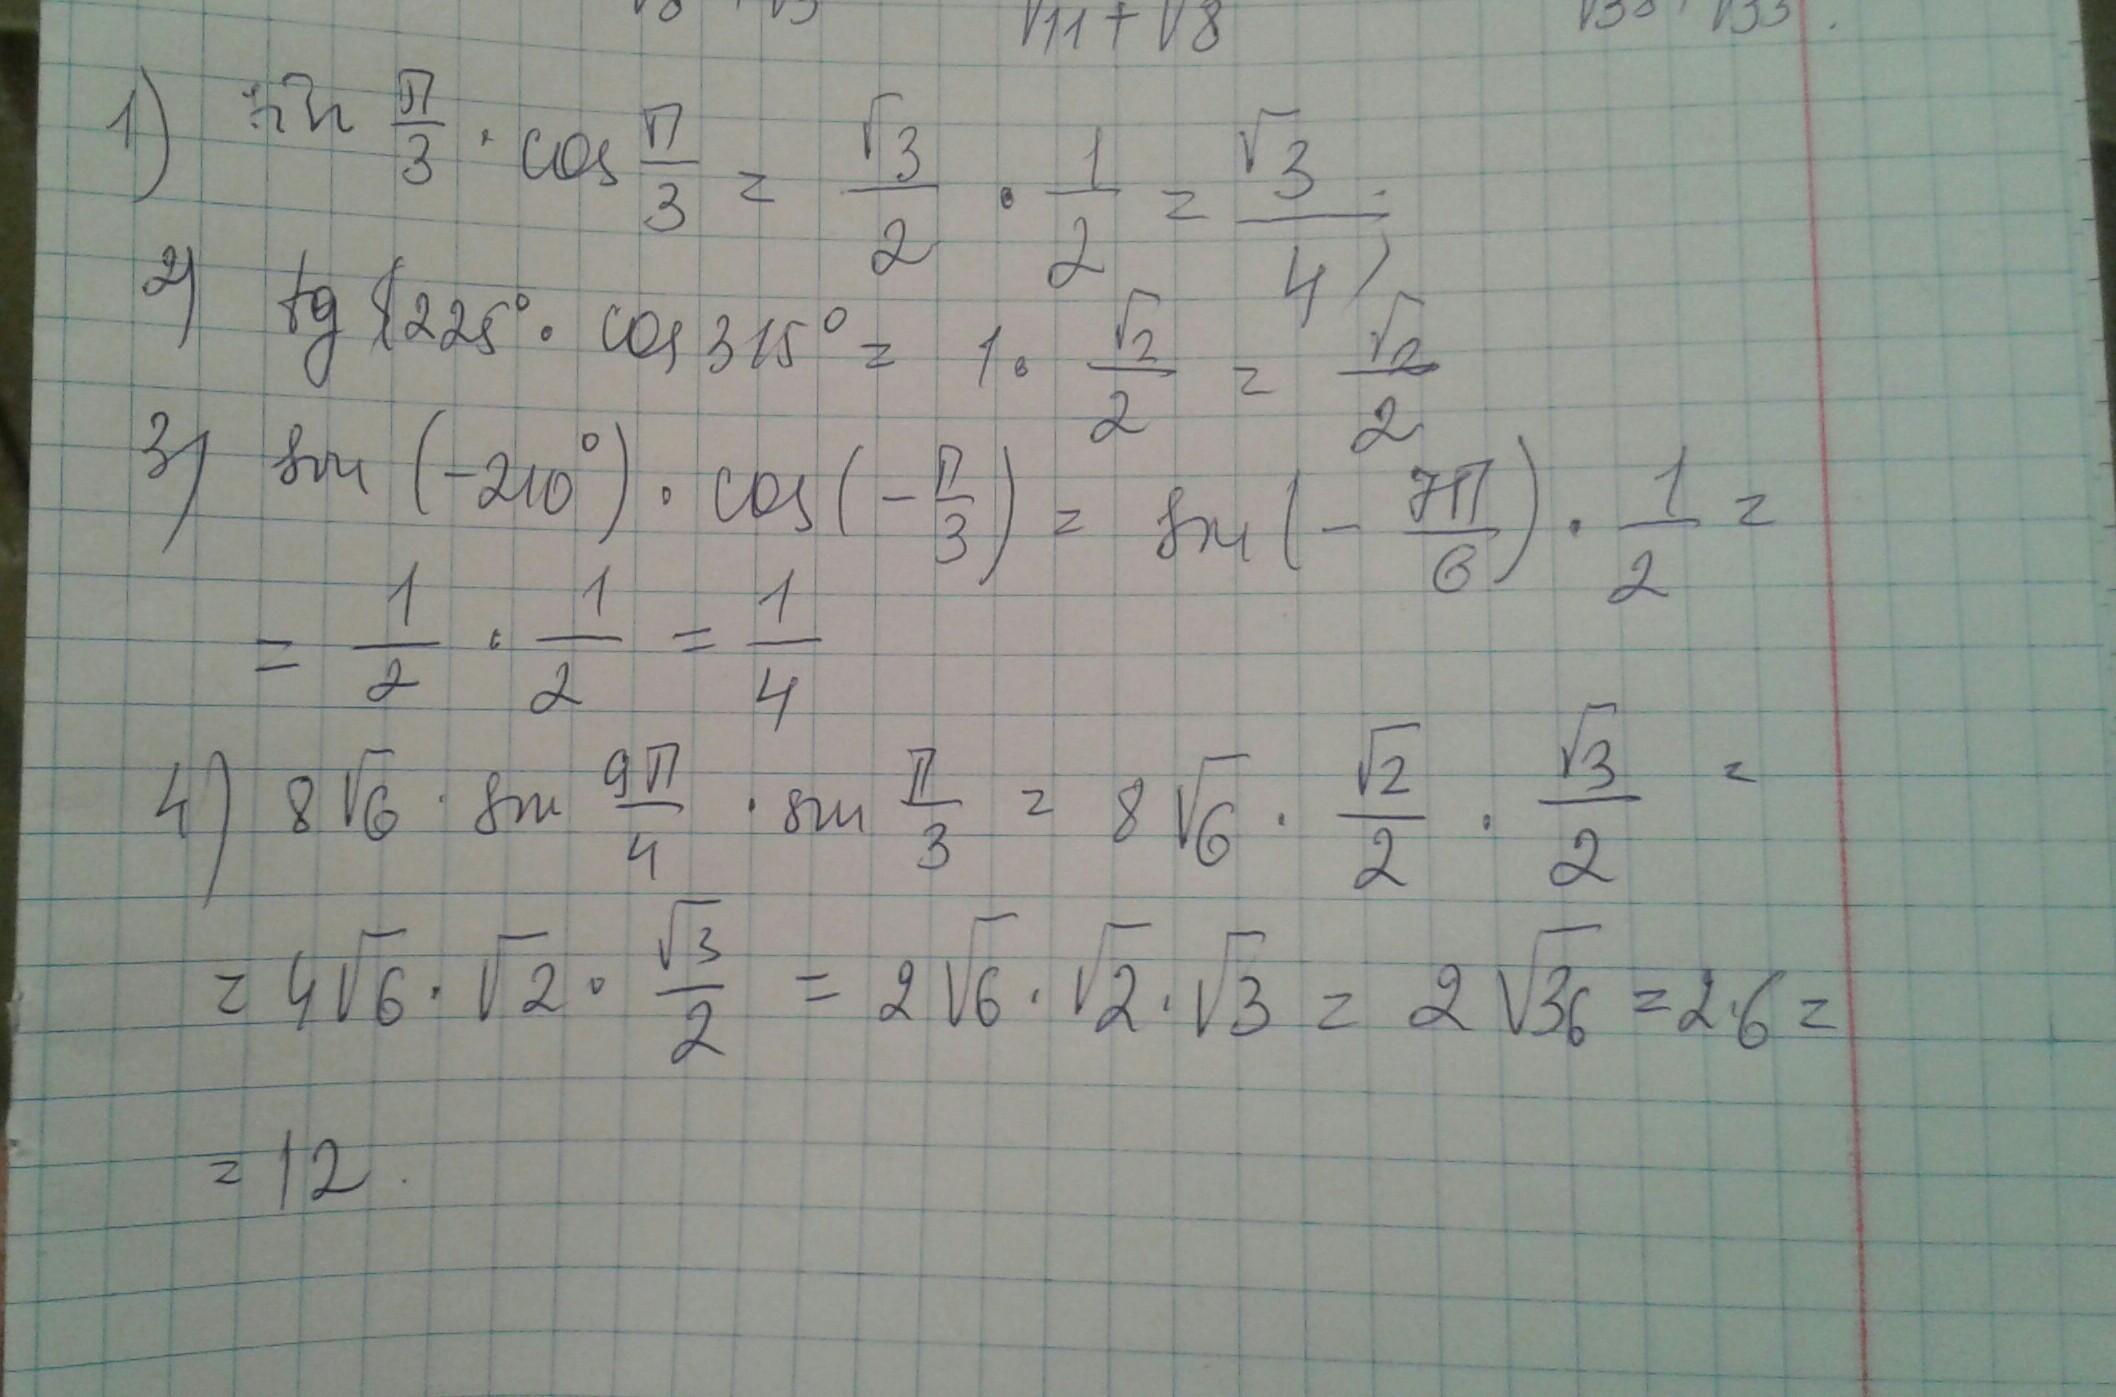 √11 + √8
1) sin π/3 · cos π/3 = √3/2 · 1/2 = √3/4;
2) tg 225° · cos 315° = 1 · √2/2 = √2/2
3) sin (-210°) · cos (-π/3) = sin (-7π/6) · 1/2 =
= 1/2 · 1/2 = 1/4
4) 8√6 · sin 9π/4 · sin π/3 = 8√6 · √2/2 · √3/2 =
= 4√6 · √2 · √3/2 = 2√6 · √2 · √3 = 2√36 = 2·6 =
= 12.